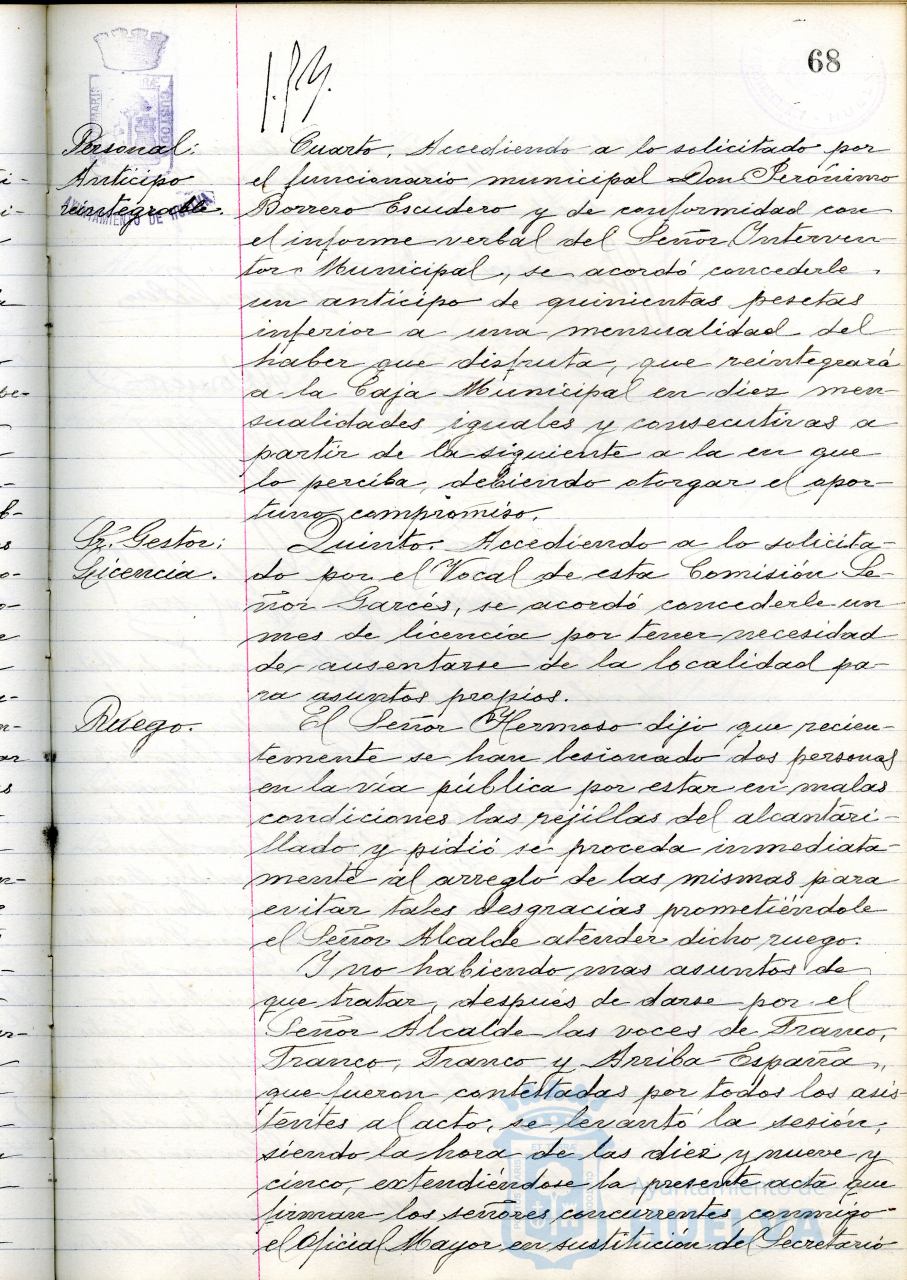 68
Personal:
Anticipo
reintegrable.
AYUNTAMIENTO DE HUELVA
Cuarto. Accediendo a lo solicitado por
el funcionario municipal Don Jerónimo
Borrero Escudero y de conformidad con
el informe verbal del Señor Interven-
tor Municipal, se acordó concederle
un anticipo de quinientas pesetas
inferior a una mensualidad del
haber que disfruta, que reintegrará
a la Caja Municipal en diez men-
sualidades iguales y consecutivas a
partir de la siguiente a la en que
lo perciba, debiendo otorgar el opor-
tuno compromiso.
Sr. Gestor:
Licencia.
Quinto. Accediendo a lo solicita-
do por el Vocal de esta Comisión Se-
ñor Garcés, se acordó concederle un
mes de licencia por tener necesidad
de ausentarse de la localidad pa-
ra asuntos propios.
Ruego.
El Señor Hermoso dijo que recien-
temente se han lesionado dos personas
en la vía pública por estar en malas
condiciones las rejillas del alcantari-
llado y pidió se proceda inmediata-
mente al arreglo de las mismas para
evitar tales desgracias prometiéndole
el Señor Alcalde atender dicho ruego.
Y no habiendo mas asuntos de
que tratar, después de darse por el
Señor Alcalde las voces de Franco,
Franco, Franco y Arriba España,
que fueron contestadas por todos los asis-
tentes al acto, se levantó la sesión,
siendo la hora de las diez y nueve y
cinco, extendiéndose la presente acta que
firman los señores concurrentes conmigo
el Oficial Mayor en sustitucion del Secretario
Ayuntamiento de
HUELVA